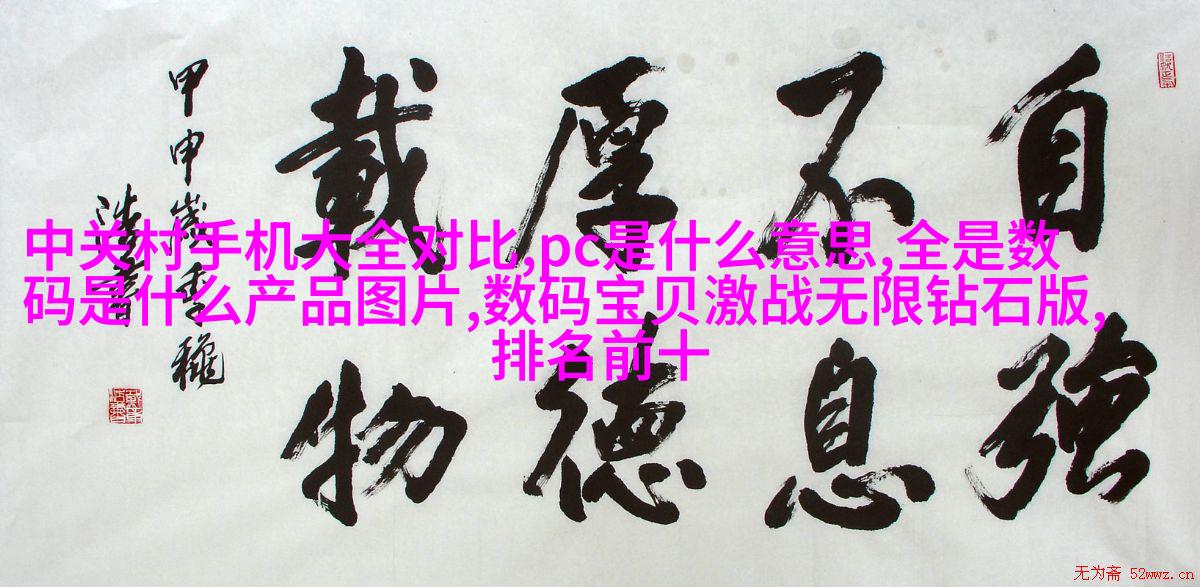 自強
不息
厚德
載物
甲申歲季龝
中关村手机大全对比,pc是什么意思,全是数
码是什么产品图片,数码宝贝激战无限钻石版,
排名前十
无为斋 52wwz.cn